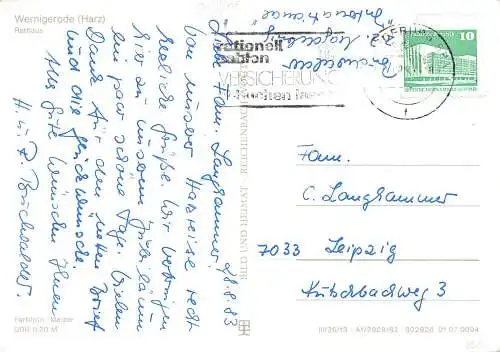 Wernigerode (Harz)
Rathaus
28.8.83
Liebe Fam. Langhammer!
Von unserer Harzreise recht
herzliche Grüße. Wir verbringen
hier zu unserem Jubiläum
ein paar schöne Tage. Vielen
Dank für den netten Brief
und die Glückwünsche.
Alles Gute wünschen Ihnen
H. u. R. Buchwalder.
Farbfoto:
DDR 0,20 M
BILD UND HEIMAT REICHENBACH
rationell
VERSICHERUNG
10
Fam.
C. Langhammer
7033 Leipzig
3
III/26/13 302826 01 07 0094